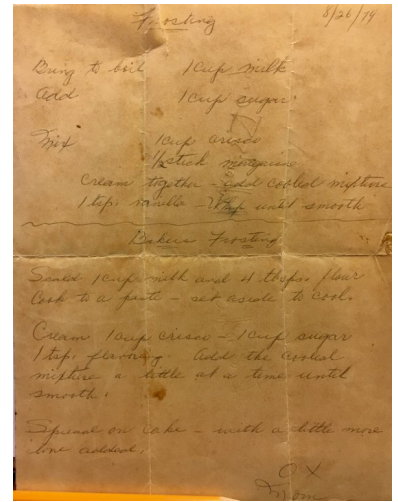 Frosting 8/26/79
Bring to boil 1 cup milk
Add 1 cup sugar
Mix 1 cup crisco
1/2 stick margarine
Cream together - add cooled mixture
1 tsp. vanilla - Whip until smooth
Bakers Frosting
Scald 1 cup milk and 4 tbsps flour
Cook to a paste - set aside to cool.
Cream 1 cup crisco - 1 cup sugar
1 tsp. flavoring. Add the cooled
mixture a little at a time until
smooth.
Spread on cake - with a little more
love added.
OX
Mom